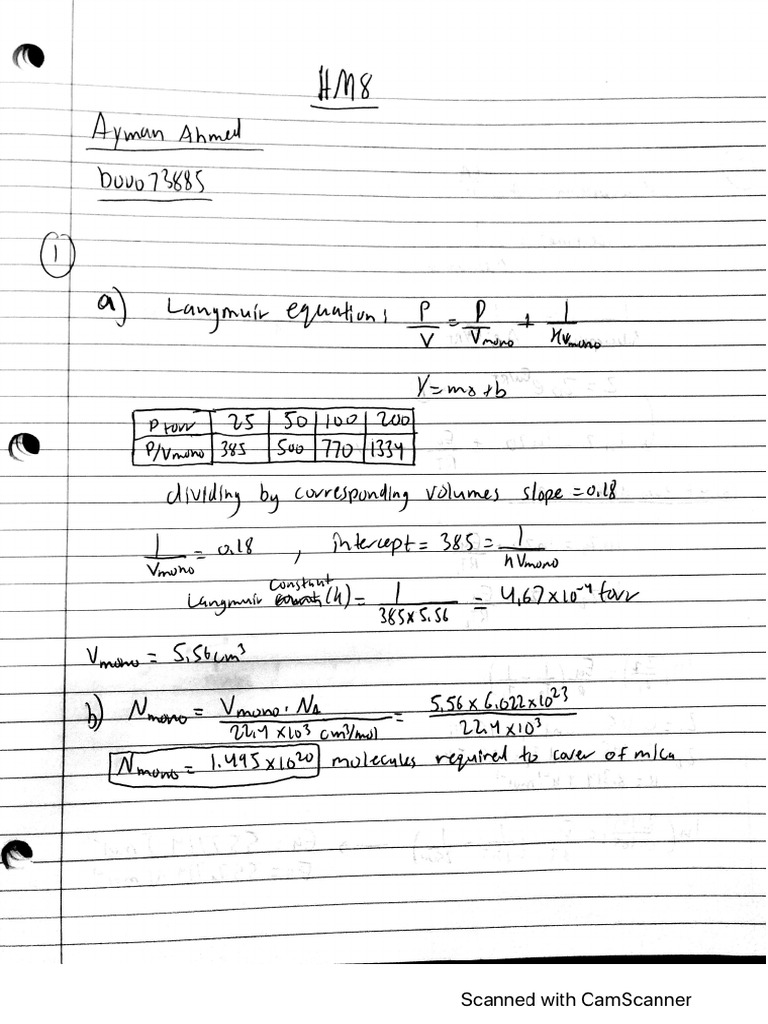 HM8
Ayman Ahmed
b00073885
1
a) Langmuir equation: P/V = P/Vmono + 1/hVmono
Y=mx+b
P torr 25 50 100 200
P/Vmono 385 500 770 1334
dividing by corresponding volumes slope = 0.18
1/Vmono = 0.18 , intercept = 385 = 1/hVmono
Langmuir constant (h) = 1/385×5.56 = 4.67×10⁻⁴ torr
Vmono = 5.56 cm³
b) Nmono = Vmono . NA/22.4 ×10³ cm³/mol = 5.56 × 6.022×10²³/22.4 ×10³
Nmono = 1.495×10²⁰ molecules required to cover of mica
Scanned with CamScanner